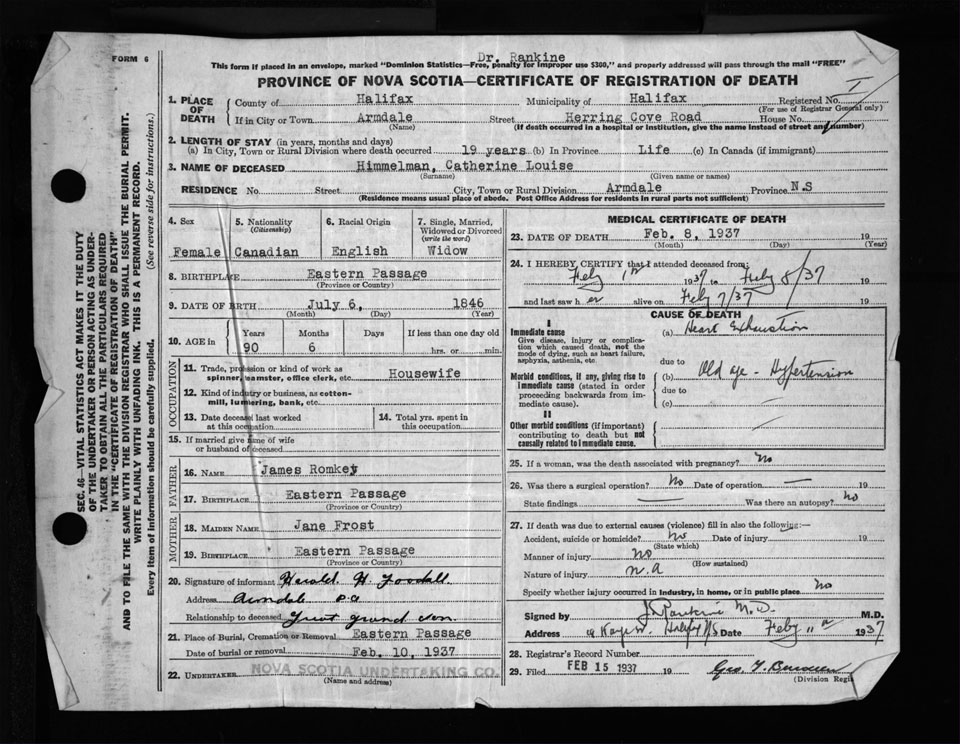 FORM 6
Dr. Rankine
This form if placed in an envelope, marked "Dominion Statistics—Free, penalty for improper use $300," and properly addressed will pass through the mail "FREE"
PROVINCE OF NOVA SCOTIA—CERTIFICATE OF REGISTRATION OF DEATH
1. PLACE OF DEATH
County of Halifax Municipality of Halifax Registered No.
(For use of Registrar General only)
If in City or Town Armdale Street Herring Cove Road House No.
(Name) (If death occurred in a hospital or institution, give the name instead of street and number)
2. LENGTH OF STAY (in years, months and days)
(a) In City, Town or Rural Division where death occurred 19 years (b) In Province Life (c) In Canada (if immigrant)
3. NAME OF DECEASED Himmelman, Catherine Louise
(Surname) (Given name or names)
RESIDENCE No. Street City, Town or Rural Division Armdale Province N.S
(Residence means usual place of abode. Post Office Address for residents in rural parts not sufficient)
4. Sex
Female
5. Nationality
(Citizenship)
Canadian
6. Racial Origin
English
7. Single, Married,
Widowed or Divorced
(write the word)
Widow
8. BIRTHPLACE Eastern Passage
(Province or Country)
9. DATE OF BIRTH July 6, 1846
(Month) (Day) (Year)
10. AGE in
Years Months Days If less than one day old
90 6 hrs. or min.
OCCUPATION
11. Trade, profession or kind of work as
spinner, teamster, office clerk, etc. Housewife
12. Kind of industry or business, as cotton-
mill, lumbering, bank, etc.
13. Date deceased last worked
at this occupation
14. Total yrs. spent in
this occupation
15. If married give name of wife
or husband of deceased
FATHER
16. NAME James Romkey
17. BIRTHPLACE Eastern Passage
(Province or Country)
MOTHER
18. MAIDEN NAME Jane Frost
19. BIRTHPLACE Eastern Passage
(Province or Country)
20. Signature of informant Harold H
Address Armdale P.O
Relationship to deceased Great grand son.
21. Place of Burial, Cremation or Removal Eastern Passage
Date of burial or removal Feb. 10, 1937
22. UNDERTAKER NOVA SCOTIA UNDERTAKING CO.
(Name and address)
MEDICAL CERTIFICATE OF DEATH
23. DATE OF DEATH Feb. 8, 1937 19
(Month) (Day) (Year)
24. I HEREBY CERTIFY that I attended deceased from:
Feby 1st 1937 to Feby 8/37 19
and last saw her alive on Feby 7/37 19
CAUSE OF DEATH
I
Immediate cause
Give disease, injury or complica-
tion which caused death, not the
mode of dying, such as heart failure,
asphyxia, asthenia, etc.
(a) Heart Exhaustion
due to
Morbid conditions, if any, giving rise to
immediate cause (stated in order
proceeding backwards from im-
mediate cause).
(b) Old age - Hypertension
due to
(c) —
II
Other morbid conditions (if important)
contributing to death but not
causally related to immediate cause.
25. If a woman, was the death associated with pregnancy? No
26. Was there a surgical operation? No Date of operation — 19
State findings — Was there an autopsy? No
27. If death was due to external causes (violence) fill in also the following:—
Accident, suicide or homicide? No Date of injury 19
(State which)
Manner of injury No
(How sustained)
Nature of injury n.a
Specify whether injury occurred in industry, in home, or in public place No
Signed by Rankine M.D. M.D.
Address Halifax N.S Date Feby 1937
28. Registrar's Record Number
29. Filed FEB 15 1937 19 Geo. T.
(Division Regis
SEC. 46—VITAL STATISTICS ACT MAKES IT THE DUTY
OF THE UNDERTAKER OR PERSON ACTING AS UNDER-
TAKER TO OBTAIN ALL THE PARTICULARS REQUIRED
IN THE "CERTIFICATE OF REGISTRATION OF DEATH"
AND TO FILE THE SAME WITH THE DIVISION REGISTRAR WHO SHALL ISSUE THE BURIAL PERMIT.
WRITE PLAINLY WITH UNFADING INK. THIS IS A PERMANENT RECORD.
Every item of information should be carefully supplied. (See reverse side for instructions.)